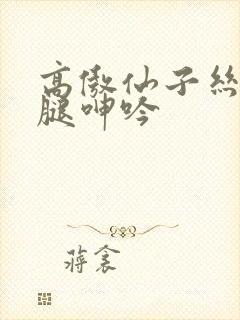 高傲仙子丝
腿呻吟
蒋衮